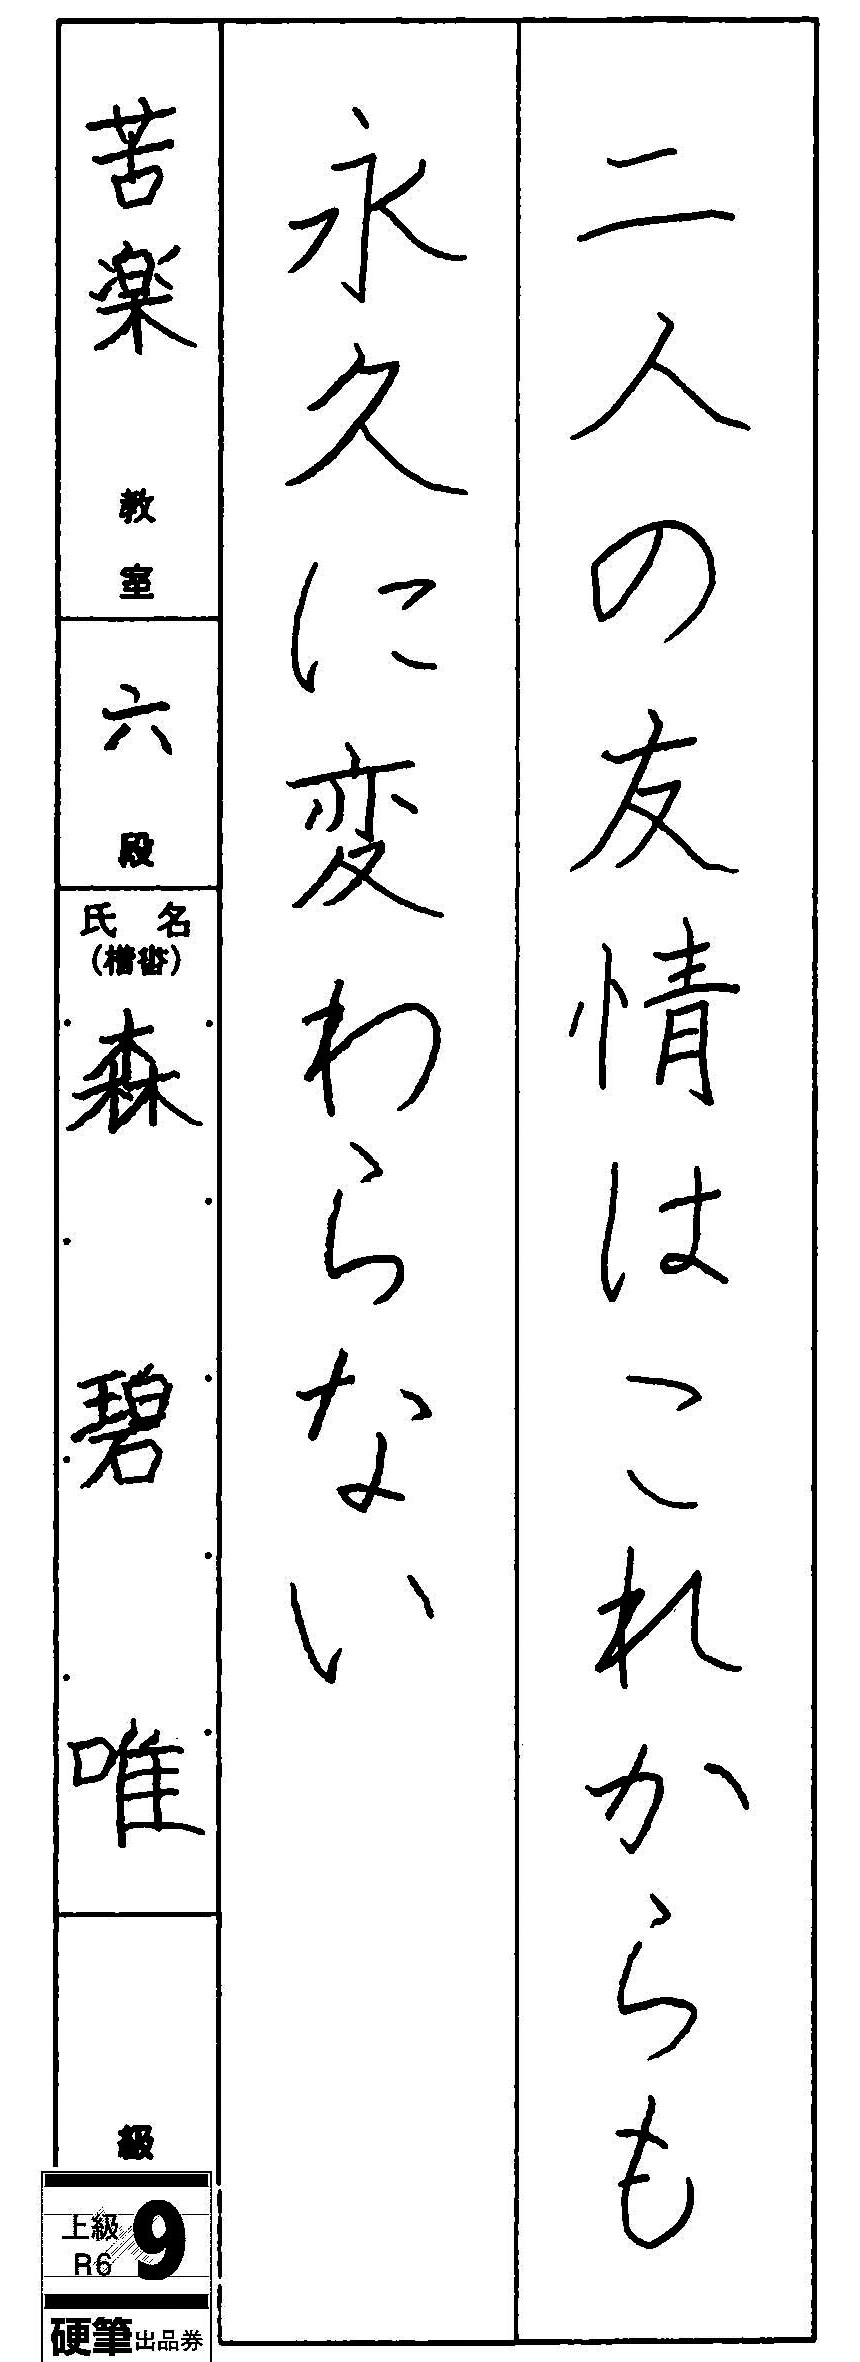 二人の友情はこれからも
永久に変わらない
苦楽 教室
六 段
氏名
(楷書)
森 碧 唯
級
上級 9
R6
硬筆出品券